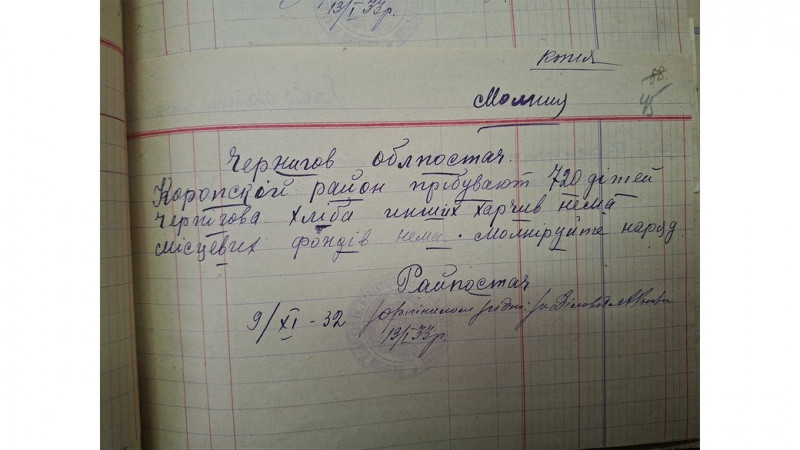 13/I 33р.
копия
88.
45
Молния
Чернигов облпостач.
Коропский район прібувают 720 дітей
Чернігова хліба инших харчив нема
місцевих фондів нема. молніруйте наряд.
Райпостач
9/XI-32 з оригіналом згідно:
13/I 33р.